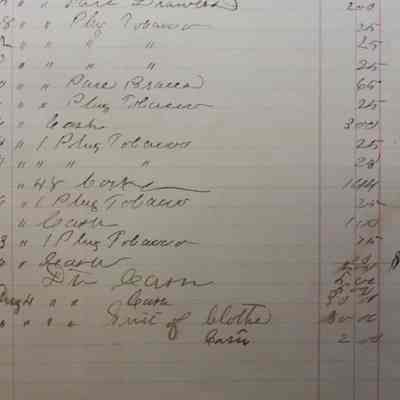 " " Pair Drawers 200
8 " " Plug Tobacco 25
" " " " 25
" " " " 25
" " Pair Braces 65
" " Plug Tobacco 25
" " Cash 300
" " 1 Plug Tobacco 25
" " " " " 25
" 48 144
" 1 Plug Tobacco 25
" Cash 100
3 " 1 Plug Tobacco 25
" Cash
Dr Cash
" " Cash
" " " Suit of Clothes
Cash 2 00